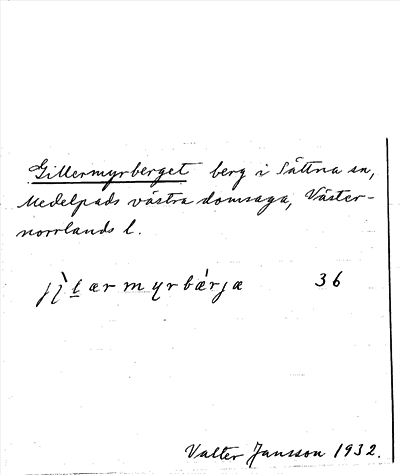 Gillermyrberget berg i Sättna sn,
Medelpads västra domsaga, Väster-
norrlands l.
jìlærmyrbǽrjæ 36
Valter Jansson 1932.